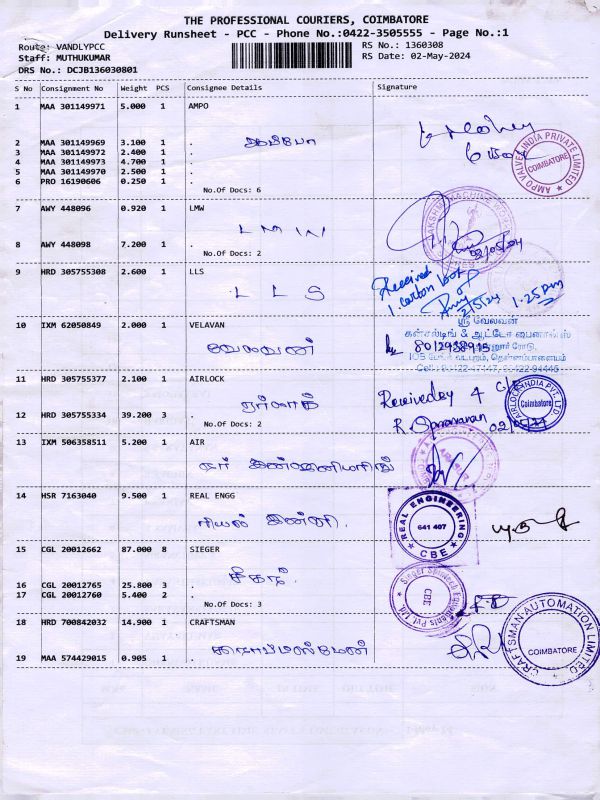 THE PROFESSIONAL COURIERS, COIMBATORE
Delivery Runsheet - PCC - Phone No.:0422-3505555 - Page No.:1
Route: VANDLYPCC
RS No.: 1360308
Staff: MUTHUKUMAR
RS Date: 02-May-2024
DRS No.: DCJB136030801
S No Consignment No Weight PCS Consignee Details Signature
1 MAA 301149971 5.000 1 AMPO
2 MAA 301149969 3.100 1 .
3 MAA 301149972 2.400 1 .
4 MAA 301149973 4.700 1 .
5 MAA 301149970 2.500 1 .
6 PRO 16190606 0.250 1 .
No.Of Docs: 6
AMPO VALVES INDIA PRIVATE LIMITED
COIMBATORE
7 AWY 448096 0.920 1 LMW
LMW
8 AWY 448098 7.200 1 .
No.Of Docs: 2
02/05/24
9 HRD 305755308 2.600 1 LLS
LLS
Received
1 carton box
2/5/24 1.25pm
10 IXM 62050849 2.000 1 VELAVAN
வேலவன்
ஸ்ரீ வேலவன்
கன்சல்டிங் & ஆட்டோ பைனான்ஸ்
11 HRD 305755377 2.100 1 AIRLOCK
ஏர்லாக்
12 HRD 305755334 39.200 3 .
No.Of Docs: 2
Received by 4 C/B
R. Saravanan 02/05/24
AIRLOCK INDIA PVT. LTD
Coimbatore
13 IXM 506358511 5.200 1 AIR
14 HSR 7163040 9.500 1 REAL ENGG
ரியல் இன்ஜி.
REAL ENGINEERING
641 407
CBE
15 CGL 20012662 87.000 8 SIEGER
சீகர்
16 CGL 20012765 25.800 3 .
17 CGL 20012760 5.400 2 .
No.Of Docs: 3
Sieger Spintech Equipments Pvt. Ltd.
CBE
18 HRD 700842032 14.900 1 CRAFTSMAN
19 MAA 574429015 0.905 1 .
CRAFTSMAN AUTOMATION LIMITED
COIMBATORE